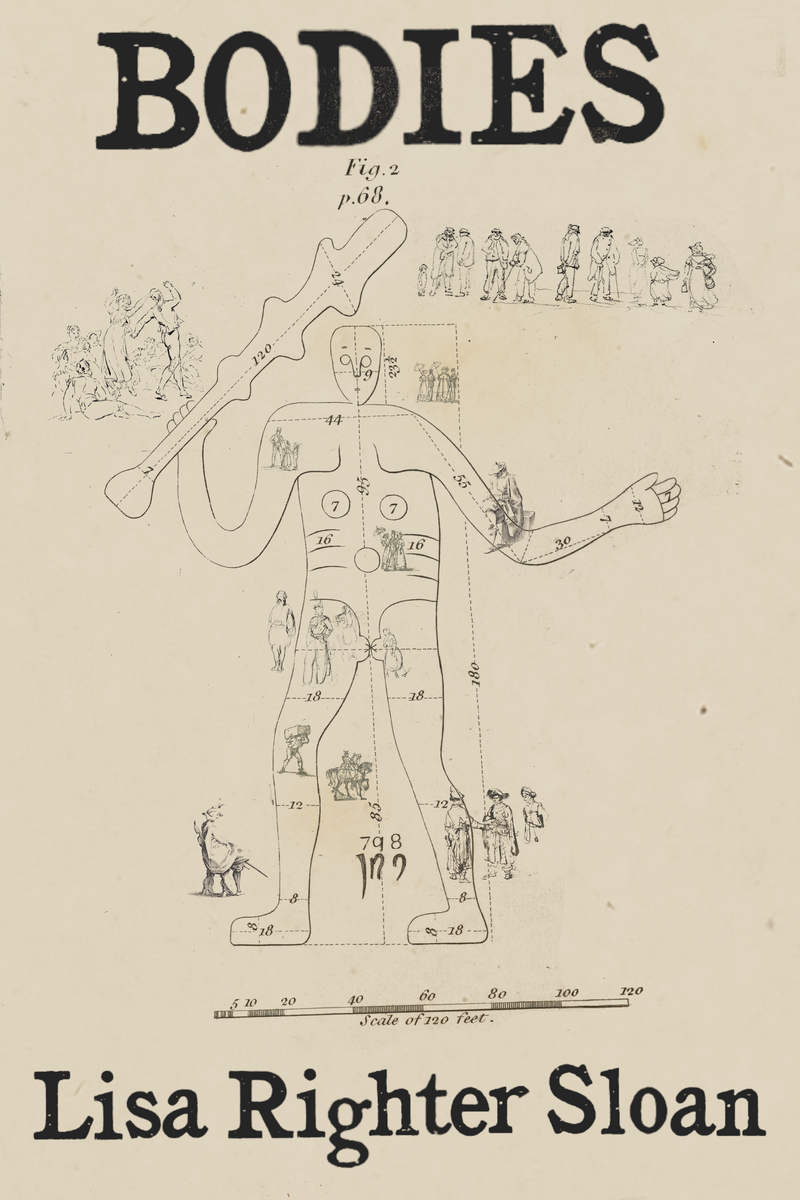 BODIES
Fig. 2
p.68.
24
120
7
9
23½
44
55
95
7 7
16 16
30
7
12
7
180
18 18
12 12
85
798
8 8
8 18 8 18
5 10 20 40 60 80 100 120
Scale of 120 feet.
Lisa Righter Sloan